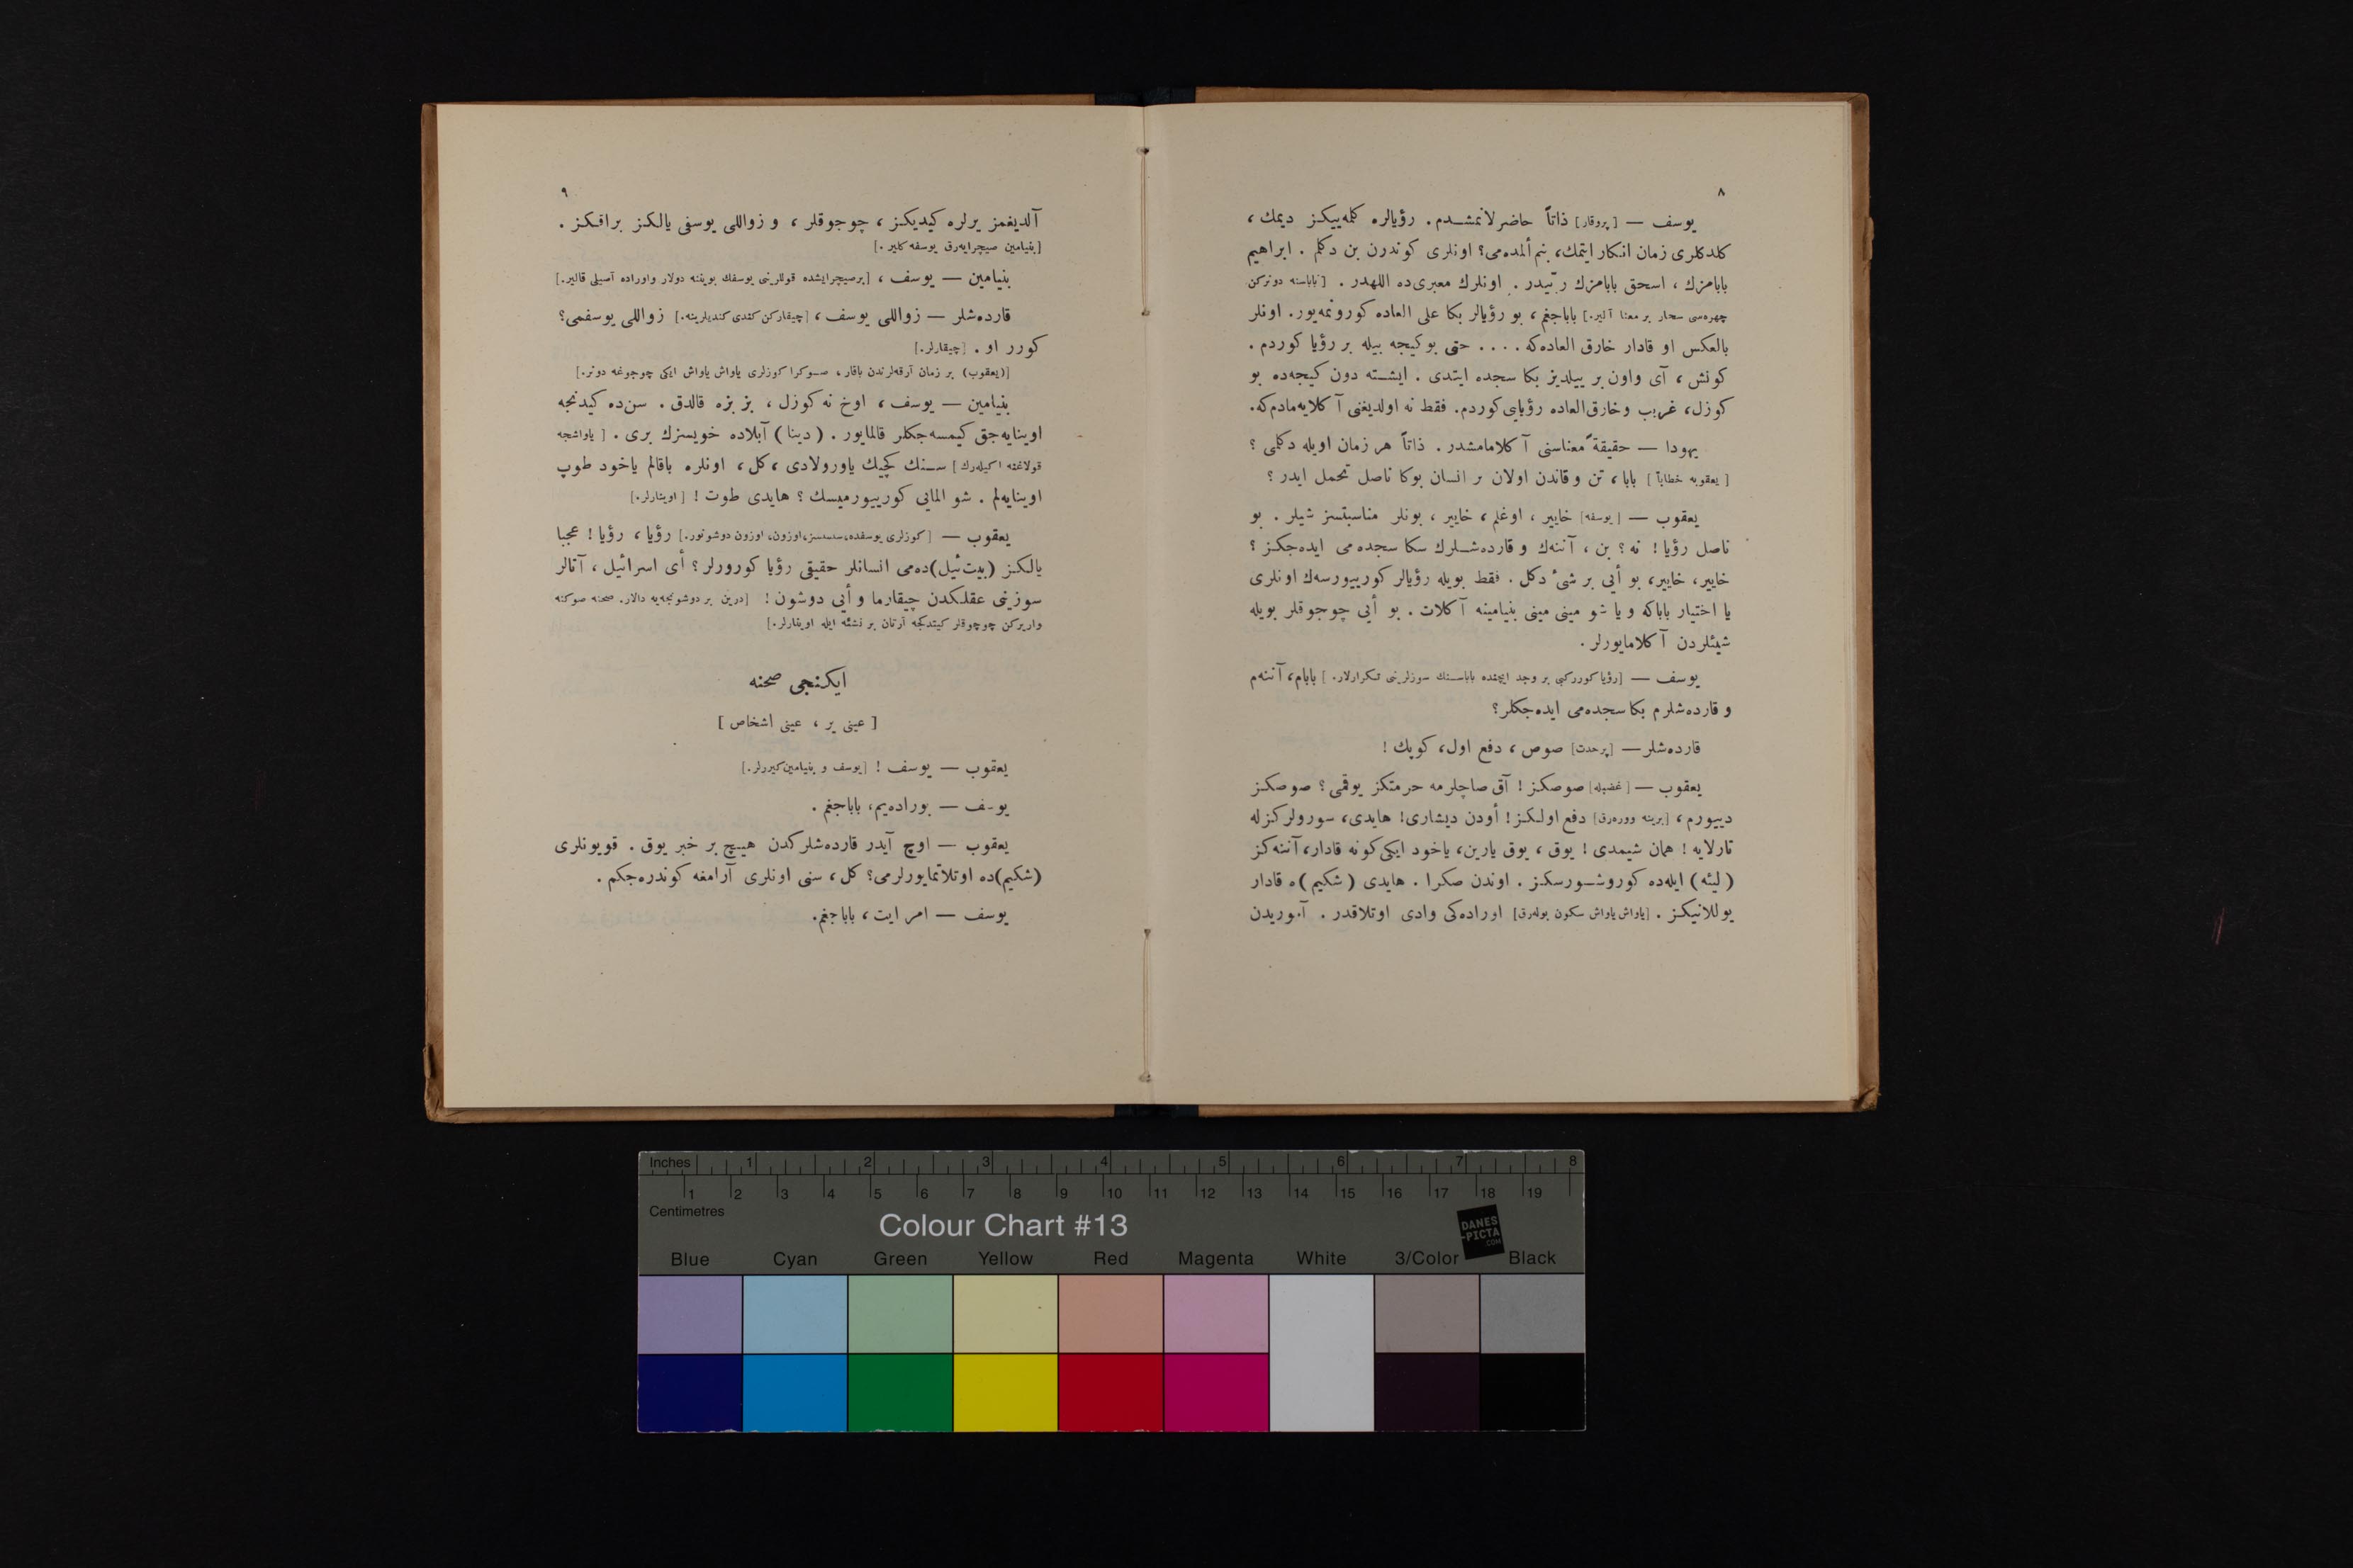 ٨
يوسف — [پروقار] ذاتاً حاضرلانمشدم. رؤيالره كله‌ييكز ديمك،
كلدكلرى زمان انكار ايتمك، بنم ألمده‌مى؟ اونلرى كوندرن بن دكلم . ابراهيم
بابامزك ، اسحق بابامزك ربّيدر . اونلرك معبرى‌ده اللهدر . [باباسنه دونركن
چهره‌سى سحار بر معنا آلير.] باباجغم ، بو رؤيالر بكا على العاده كورونمه‌يور. اونلر
بالعكس او قادار خارق العاده‌كه . . . . حتى بوكيجه بيله بر رؤيا كوردم .
كونش ، آى واون بر ييلديز بكا سجده ايتدى . ايشته دون كيجه‌ده بو
كوزل، غريب وخارق‌العاده رؤيايى كوردم. فقط نه اولديغنى آكلايه‌مادم‌كه.
يهودا — حقيقةً معناسنى آكلامامشدر . ذاتاً هر زمان اويله دكلمى ؟
[يعقوبه خطاباً] بابا، تن وقاندن اولان بر انسان بوكا ناصل تحمل ايدر ؟
يعقوب — [يوسفه] خايير ، اوغلم ، خايير ، بونلر مناسبتسز شيلر . بو
ناصل رؤيا ! نه ؟ بن ، آننه‌ك و قارده‌شلرك سكا سجده مى ايده‌جكز ؟
خايير، خايير، بو أيى بر شىٔ دكل . فقط بويله رؤيالر كورييورسه‌ك اونلرى
يا اختيار باباكه و يا شو مينى مينى بنيامينه آكلات . بو أيى چوجوقلر بويله
شيئلردن آكلامايورلر .
يوسف — [رؤيا كورركبى بر وجد ايچنده باباسنك سوزلرينى تكرارلار.] بابام، آننه‌م
و قارده‌شلرم بكا سجده‌مى ايده‌جكلر؟
قارده‌شلر — [پرحدت] صوص ، دفع اول، كوپك !
يعقوب — [غضبله] صوصكز ! آق صاچلرمه حرمتكز يوقمى ؟ صوصكز
دييورم ، [برينه ووره‌رق] دفع اولكز ! أودن ديشارى! هايدى، سورولركزله
تارلايه ! همان شيمدى ! يوق ، يوق يارين، ياخود ايكى كونه قادار، آننه‌كز
(ليئه) ايله‌ده كوروشورسكز . اوندن صكرا . هايدى (شكيم)ه قادار
يوللانيكز . [ياواش ياواش سكون بوله‌رق] اوراده‌كى وادى اوتلاقدر . آموريدن
٩
آلديغمز يرلره كيديكز ، چوجوقلر ، و زواللى يوسفى يالكز براقكز .
[بنيامين صيچرايه‌رق يوسفه كلير .]
بنيامين — يوسف ، [برصيچرايشده قوللرينى يوسفك بويننه دولار واوراده آصيلى قالير.]
قارده‌شلر — زواللى يوسف ، [چيقاركن كندى كنديلرينه.] زواللى يوسفمى؟
كورر او . [چيقارلر.]
[(يعقوب) بر زمان آرقه‌لرندن باقار ، صوكرا كوزلرى ياواش ياواش ايكى چوجوغه دونر.]
بنيامين — يوسف ، اوخ نه كوزل ، بز بزه قالدق . سن‌ده كيدنجه
اوينايه‌جق كيمسه‌جكلر قالمايور . (دينا) آبلاده خويسزك برى . [ياواشجه
قولاغنه اكيله‌رك] سنك كچيك ياورولادى ، كل ، اونلره باقالم ياخود طوپ
اوينايه‌لم . شو المايى كورييورميسك ؟ هايدى طوت ! [اوينارلر.]
يعقوب — [كوزلرى يوسفده، سسسز، اوزون، اوزون دوشونور.] رؤيا ، رؤيا ! عجبا
يالكز (بيت ئيل)ده‌مى انسانلر حقيقى رؤيا كورورلر ؟ أى اسرائيل ، آتالر
سوزينى عقلكدن چيقارما و أيى دوشون ! [درين بر دوشونجه‌يه دالار. صحنه صوكنه
واريركن چوجوقلر كيتدكجه آرتان بر نشئه ايله اوينارلر.]
ايكنجى صحنه
[ عينى ير ، عينى اشخاص ]
يعقوب — يوسف ! [يوسف و بنيامين كيررلر.]
يوسف — بوراده‌يم، باباجغم .
يعقوب — اوچ آيدر قارده‌شلركدن هيچ بر خبر يوق . قويونلرى
(شكيم)ده اوتلاتمايورلرمى؟ كل، سنى اونلرى آرامغه كوندره‌جكم .
يوسف — امر ايت ، باباجغم.
Inches 1 2 3 4 5 6 7 8
1 2 3 4 5 6 7 8 9 10 11 12 13 14 15 16 17 18 19
Centimetres
Colour Chart #13
DANES
-PICTA
.COM
Blue Cyan Green Yellow Red Magenta White 3/Color Black